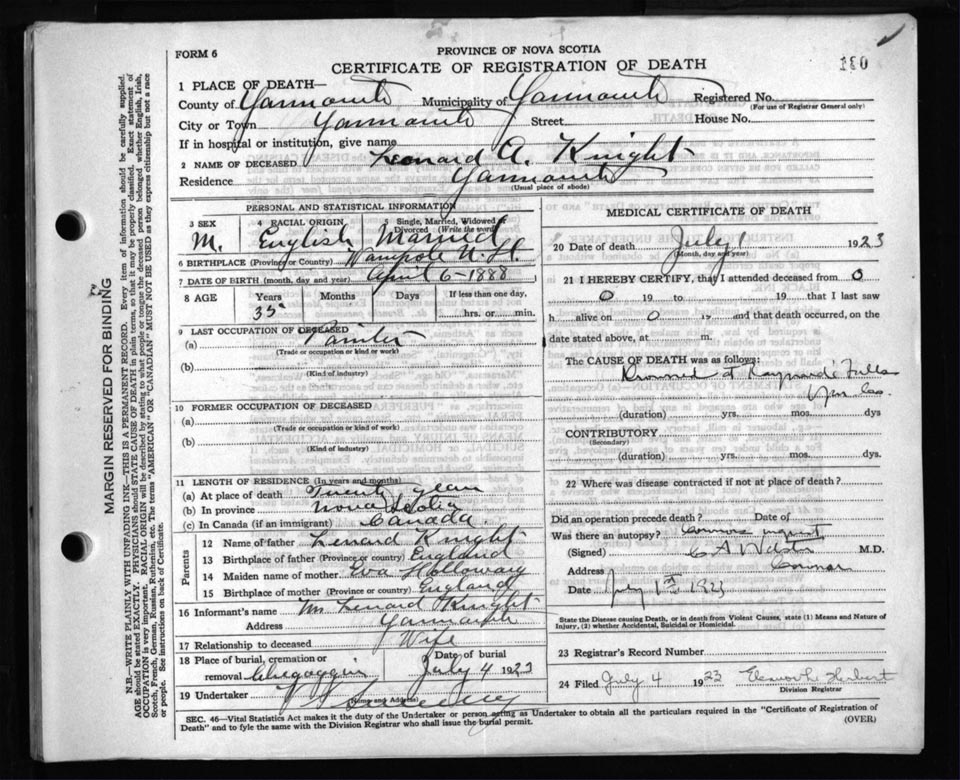 FORM 6
PROVINCE OF NOVA SCOTIA
CERTIFICATE OF REGISTRATION OF DEATH
180
1 PLACE OF DEATH—
County of Yarmouth Municipality of Yarmouth Registered No.
(For use of Registrar General only)
City or Town Yarmouth Street House No.
If in hospital or institution, give name
2 NAME OF DECEASED Leonard A. Knight
Residence Yarmouth
(Usual place of abode)
PERSONAL AND STATISTICAL INFORMATION
3 SEX M. 4 RACIAL ORIGIN English 5 Single, Married, Widowed or Divorced (Write the word) Married
6 BIRTHPLACE (Province or Country) N.H.
7 DATE OF BIRTH (month, day and year) April 6-1888
8 AGE Years 35 Months Days If less than one day, hrs. or min.
9 LAST OCCUPATION OF DECEASED
(a) Painter
(Trade or occupation or kind of work)
(b)
(Kind of industry)
10 FORMER OCCUPATION OF DECEASED
(a)
(Trade or occupation or kind of work)
(b)
(Kind of industry)
11 LENGTH OF RESIDENCE (In years and months)
(a) At place of death Twenty years
(b) In province Nova Scotia
(c) In Canada (if an immigrant) Canada
Parents
12 Name of father Lenard Knight
13 Birthplace of father (Province or country) England
14 Maiden name of mother Eva Holloway
15 Birthplace of mother (Province or country) England
16 Informant's name Mrs Lenard Knight
Address Yarmouth
17 Relationship to deceased Wife
18 Place of burial, cremation or removal Chegoggin Date of burial July 4 1923
19 Undertaker
(Name and Address)
MEDICAL CERTIFICATE OF DEATH
20 Date of death July 1 1923
(Month, day and year)
21 I HEREBY CERTIFY, that I attended deceased from 0
0 19 to 19 that I last saw
h alive on 0 19 and that death occurred, on the
date stated above, at m.
The CAUSE OF DEATH was as follows:
Drowned at Raynards Falls
Yar. Co.
(duration) yrs. mos. dys
CONTRIBUTORY
(Secondary)
(duration) yrs. mos. dys.
22 Where was disease contracted if not at place of death?
Did an operation precede death? Date of
Was there an autopsy? Coroners inquest
(Signed) C A Webster M.D.
Address Coroner
Date July 1st 1923
State the Disease causing Death, or in death from Violent Causes, state (1) Means and Nature of Injury, (2) whether Accidental, Suicidal or Homicidal.
23 Registrar's Record Number
24 Filed July 4 1923 Herbert
Division Registrar
SEC. 46—Vital Statistics Act makes it the duty of the Undertaker or person acting as Undertaker to obtain all the particulars required in the "Certificate of Registration of
Death" and to fyle the same with the Division Registrar who shall issue the burial permit.
(OVER)
MARGIN RESERVED FOR BINDING
N.B.—WRITE PLAINLY WITH UNFADING INK—THIS IS A PERMANENT RECORD. Every item of information should be carefully supplied.
AGE should be stated EXACTLY. PHYSICIANS should STATE CAUSE OF DEATH in plain terms, so that it may be properly classified. Exact statement of
OCCUPATION is very important. RACIAL ORIGIN will be described by stating to what people or tongue the deceased person belonged whether English, Irish,
Scotch, French, German, Russian, Ruthenian, etc. The terms "AMERICAN" or "CANADIAN" MUST NOT BE USED as they express citizenship but not a race
or people. See instructions on back of Certificate.